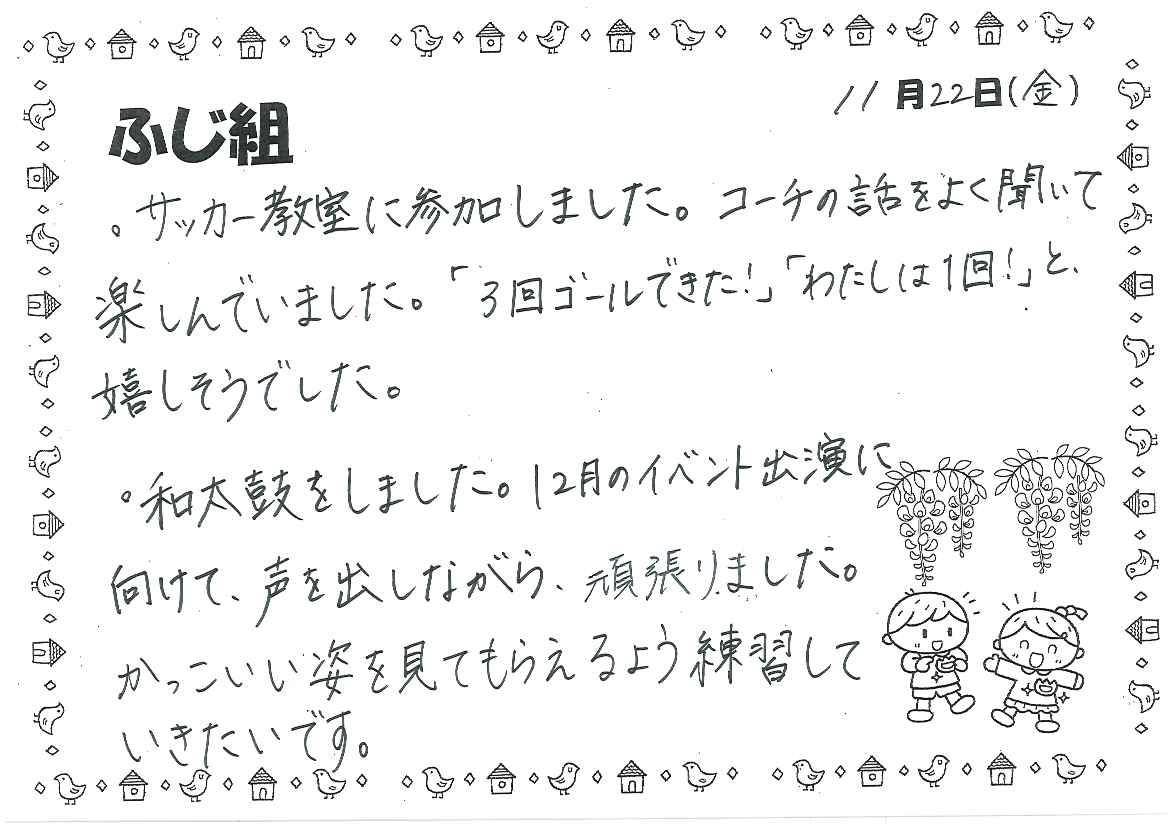 11月22日(金)
ふじ組
。サッカー教室に参加しました。コーチの話をよく聞いて
楽しんでいました。「3回ゴールできた!」「わたしは1回!」と、
嬉しそうでした。
。和太鼓をしました。12月のイベント出演に
向けて、声を出しながら、頑張りました。
かっこいい姿を見てもらえるよう練習して
いきたいです。